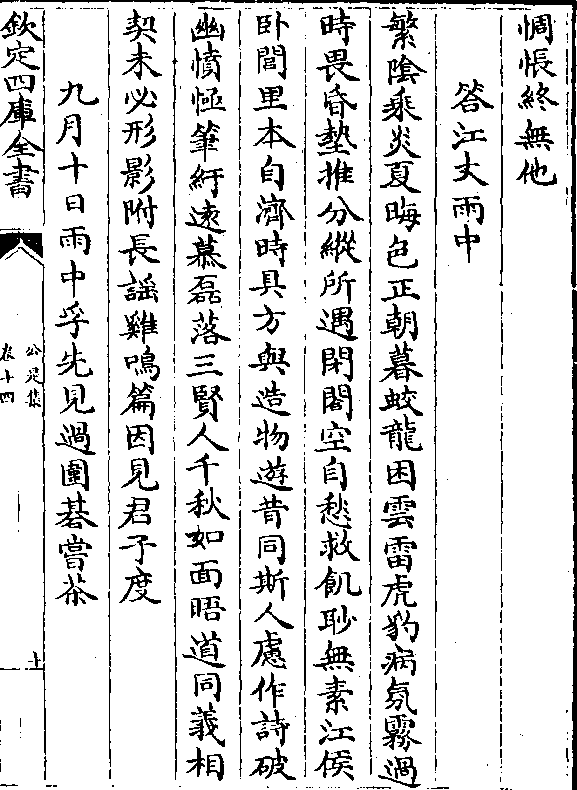 惆悵終無他
答江丈雨中
繁陰乘炎夏晦色正朝暮蛟龍困雲雷虎豹病氛霧過
時畏昏墊推分縱所遇閉閤空自愁救飢恥無素江侯
卧閭里本自濟時具方與造物遊昔同斯人慮作詩破
幽憤恒筆紆遠慕磊落三賢人千秋如面晤道同義相
契未必形影附長謡雞鳴篇因見君子度
九月十日雨中孚先見過圍碁嘗茶
欽定四庫全書
公是集
卷十四